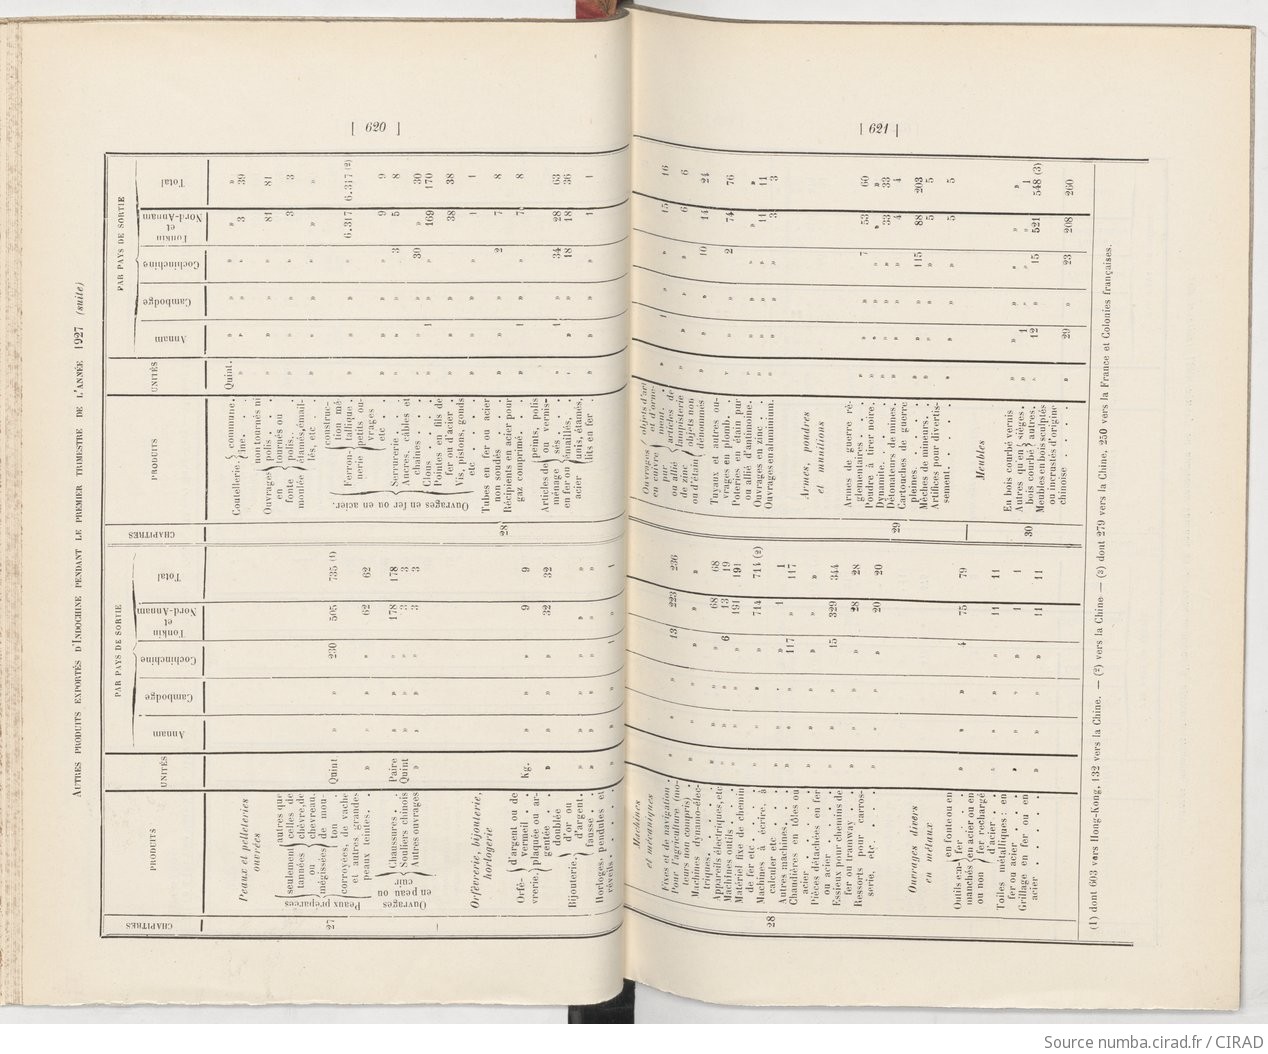 [ 620 ]
[ 621 ]
AUTRES PRODUITS EXPORTÉS D'INDOCHINE PENDANT LE PREMIER TRIMESTRE DE L'ANNÉE 1927 (suite)
CHAPITRES
PRODUITS
UNITÉS
PAR PAYS DE SORTIE
Annam
Cambodge
Cochinchine
Tonkin et Nord-Annam
Total
Peaux et pelleteries ouvrées
27
Peaux préparées
seulement tannées ou mégissées
autres que celles de chèvre, de chevreau, de mouton
Quint. » » 230 505 735 (1)
corroyées, de vache et autres grandes peaux teintes. . » » » » 62 62
Ouvrages en peau ou cuir
Chaussures . Paire » » » 178 178
Souliers chinois Quint » » » 3 3
Autres ouvrages » » » » 3 3
Orfèvrerie, bijouterie, horlogerie
Orfèvrerie. d'argent ou de vermeil . . Kg. » » » 9 9
plaquée ou argentée . . » » » » 32 32
Bijouterie, doublée d'or ou d'argent. » » » » » »
fausse . . » » » » » »
Horloges, pendules et réveils. . » » » 1 » 1
28
Machines et mécaniques
Fixes et de navigation . » » » 13 223 236
Pour l'agriculture (moteurs non compris) . » » » » » »
Machines dynamo-électriques. . . . » » » » 68 68
Appareils électriques, etc » » » 6 13 19
Machines outils. . » » » » 191 191
Matériel fixe de chemin de fer etc. . » » » » 714 714 (2)
Machines à écrire, à calculer etc » » » » 1 1
Autres machines. . » » » 117 » 117
Chaudières en tôles ou acier . . » » » » » »
Pièces détachées en fer ou acier . » » » 15 329 344
Essieux pour chemins de fer ou tramway . » » » » 28 28
Ressorts pour carrosserie, etc. . » » » » 20 20
Ouvrages divers en métaux
Outils emmanchés ou non
en fonte ou en fer » » » 4 75 79
en acier ou en fer rechargé d'acier. .
Toiles métalliques : en fer ou acier . . » » » » 11 11
Grillage en fer ou en acier . . . . » » » » 11 11
CHAPITRES
PRODUITS
UNITÉS
PAR PAYS DE SORTIE
Annam
Cambodge
Cochinchine
Tonkin et Nord-Annam
Total
28
Coutellerie. commune. Quint. » » » » »
fine. . . » » » » 3 39
Ouvrages en fonte
non tournés ni polis . . » » » » 81 81
tournés ou polis. . » » » » 3 3
étamés, émaillés, etc . . » » » » » »
Ouvrages en fer ou en acier.
Ferronnerie
construction métallique. » » » » 6.317 6.317 (2)
petits ouvrages etc . . » » » » 9 9
Serrurerie . . » » » 3 5 8
Ancres, câbles et chaînes . . » » » 30 » 30
Clous . . . » 1 » » 169 170
Pointes en fils de fer ou d'acier . » » » » 38 38
Vis, pitons, gonds etc . . » » » » 1 1
Tubes en fer ou acier non soudés . . » » » 2 7 8
Récipients en acier pour gaz comprimé. . » 1 » » 7 8
Articles de ménage en fer ou acier
peints, polis ou vernissés . . » 1 » 34 28 63
émaillés, . » » » 18 18 36
unis, étamés, . .
lits en fer . » » » » 1 1
Ouvrages en cuivre pur ou allié de zinc ou d'étain
objets d'art et d'ornement. » 1 » » 15 16
articles de lampisterie » » » » 6 6
objets non dénommés » » » 10 14 24
Tuyaux et autres ouvrages en plomb. . » » » 2 74 76
Poteries en étain pur ou allié d'antimoine. » » » » » »
Ouvrages en zinc . . » » » » 11 11
Ouvrages en aluminium. » » » » 3 3
29
Armes, poudres et munitions
Armes de guerre réglementaires . . . » » » 7 53 60
Poudre à tirer noire. » » » » » »
Dynamite. . . . » » » » 33 33
Détonateurs de mines. » » » » 4 4
Cartouches de guerre pleines. . . . » » » 115 88 203
Mèches de mineurs. » » » » 5 5
Artifices pour divertissement. . . . » » » » 5 5
30
Meubles
En bois courbé vernis » » » » » »
Autres qu'en bois courbé sièges. . » 1 » » » 1
autres. . » 12 » 15 521 548 (3)
Meubles en bois sculptés ou incrustés d'origine chinoise . . . . » 29 » 23 208 260
(1) dont 603 vers Hong-Kong, 132 vers la Chine. — (2) vers la Chine — (3) dont 279 vers la Chine, 250 vers la France et Colonies françaises.
Source numba.cirad.fr / CIRAD